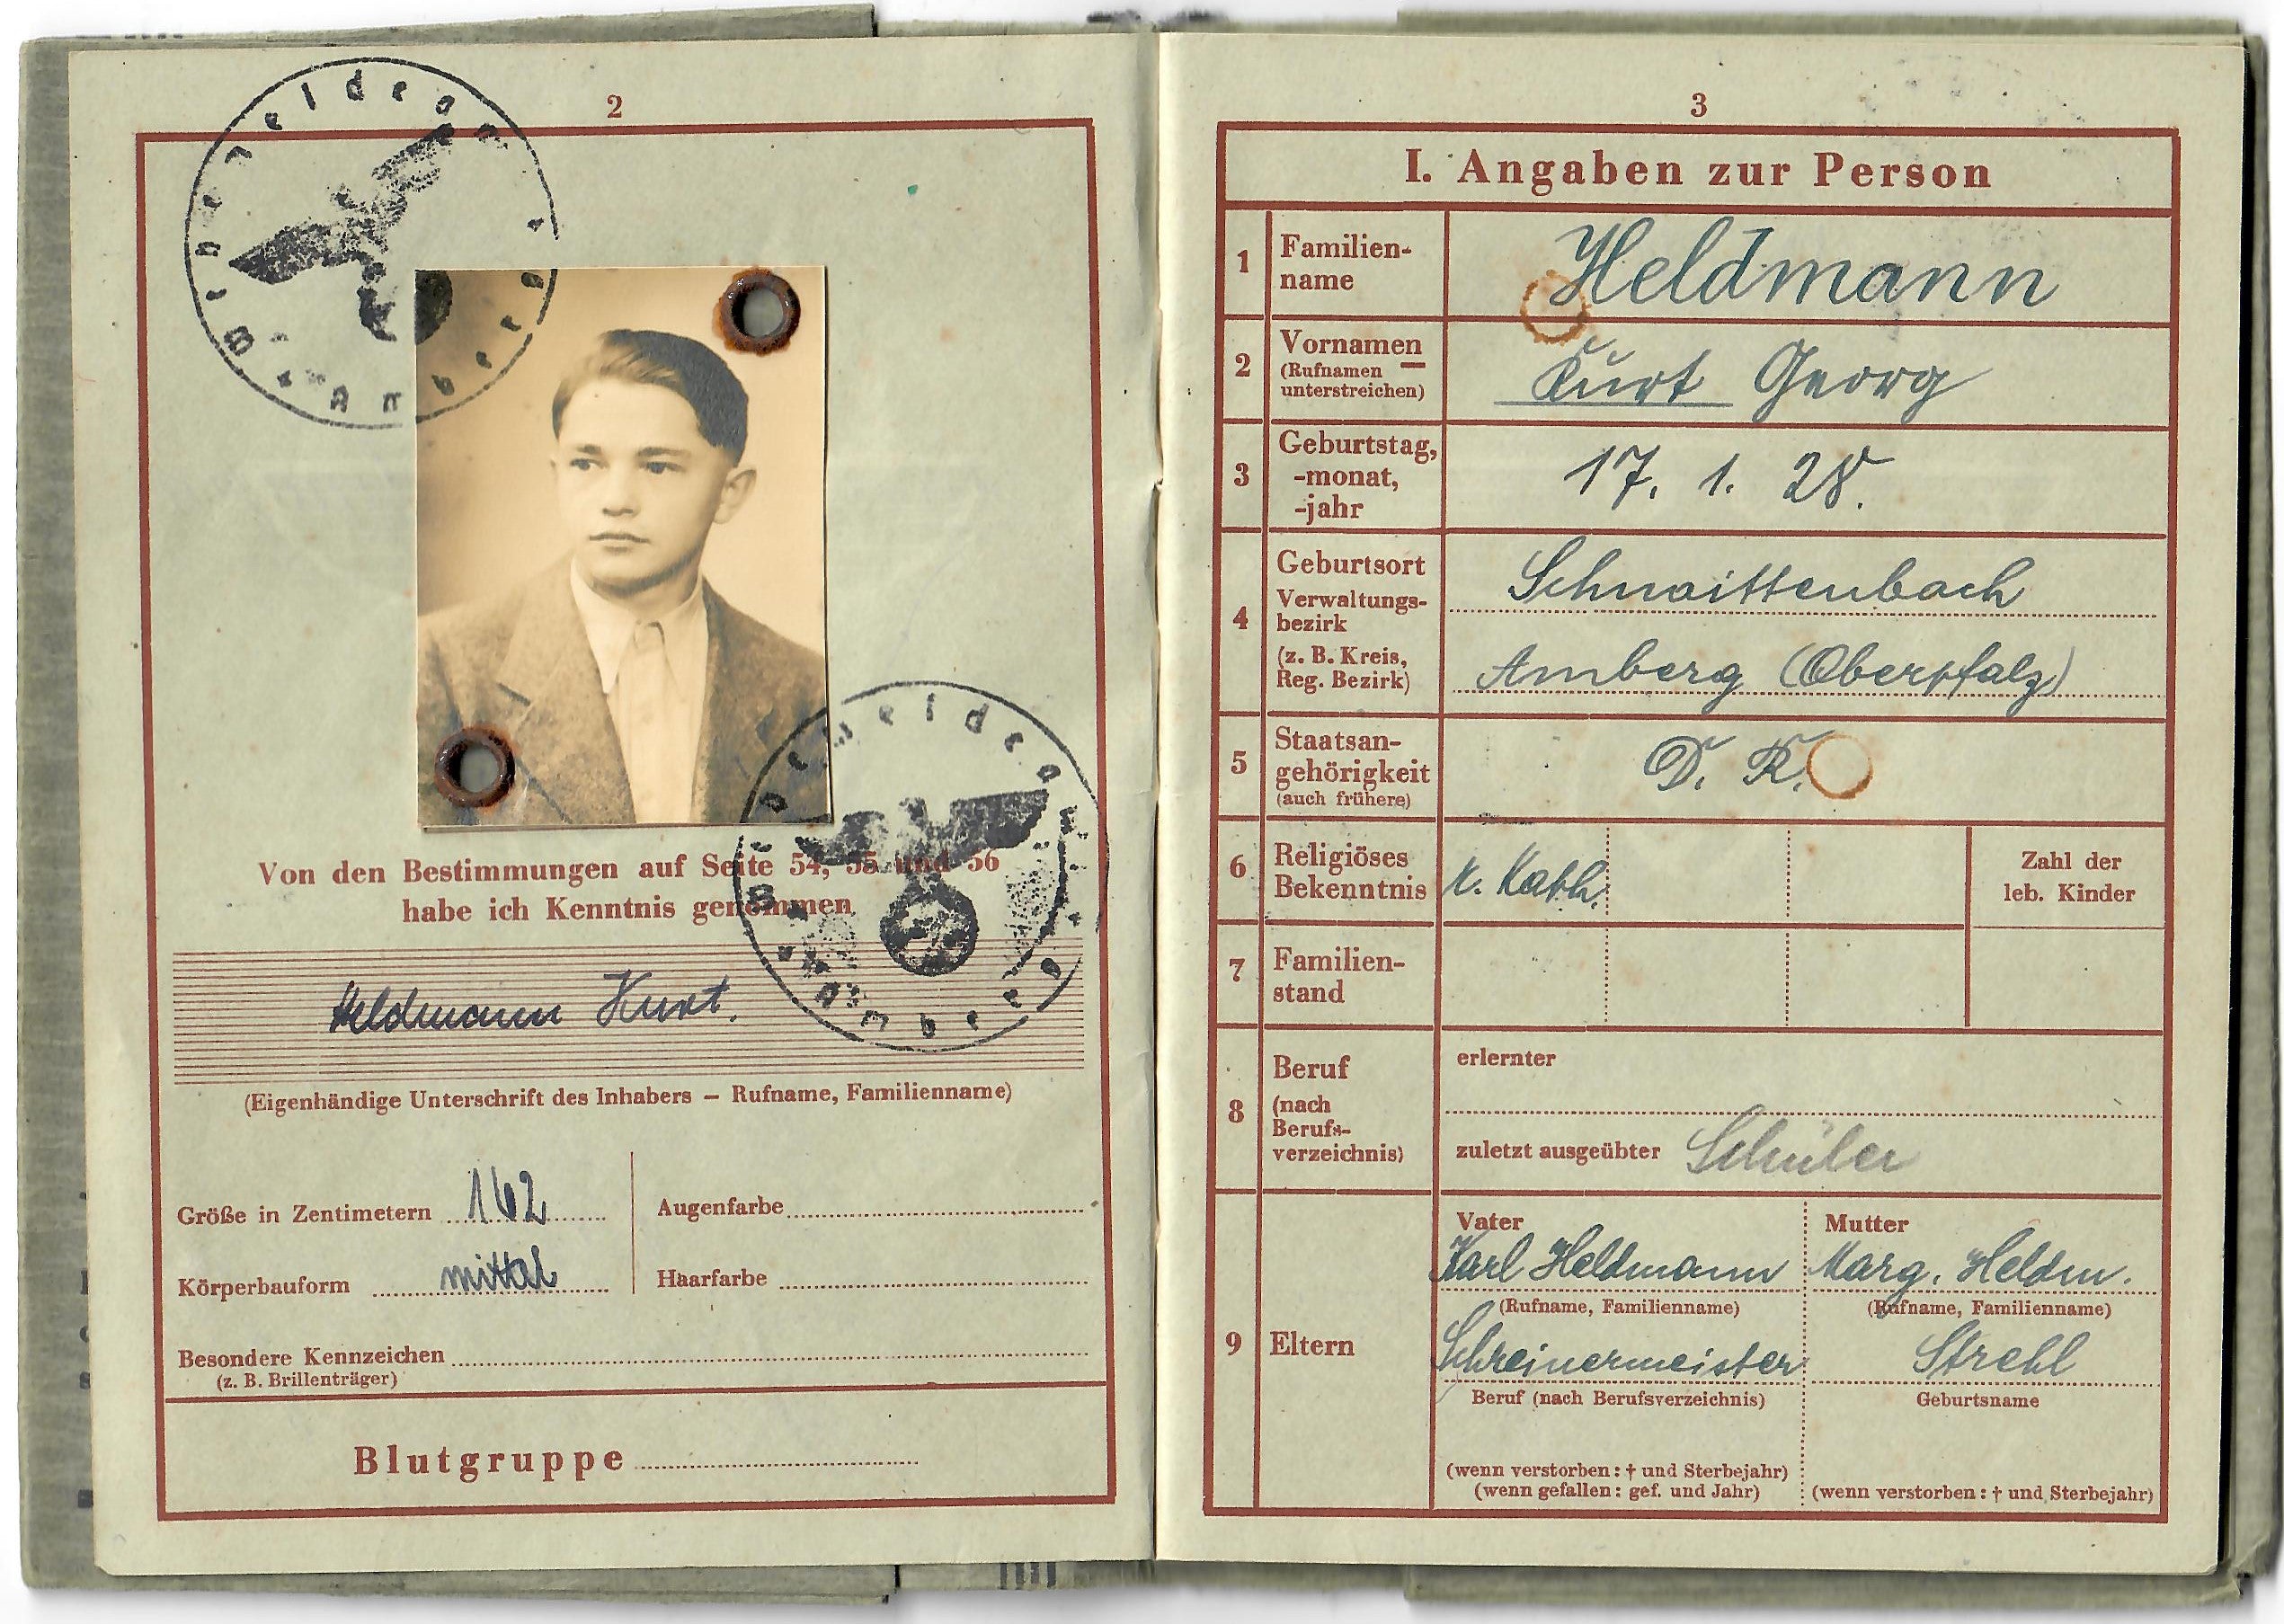 2
Wehrmeldeamt
Amberg
Von den Bestimmungen auf Seite 54, 55 und 56
habe ich Kenntnis genommen
Heldmann Kurt.
Wehrmeldeamt
Amberg
(Eigenhändige Unterschrift des Inhabers – Rufname, Familienname)
Größe in Zentimetern 162
Augenfarbe
Körperbauform mittel
Haarfarbe
Besondere Kennzeichen
(z. B. Brillenträger)
Blutgruppe
3
I. Angaben zur Person
1 Familien-
name
Heldmann
2 Vornamen
(Rufnamen
unterstreichen)
Kurt Georg
3 Geburtstag,
-monat,
-jahr
17. 1. 28.
4 Geburtsort
Verwaltungs-
bezirk
(z. B. Kreis,
Reg. Bezirk)
Schnaittenbach
Amberg (Oberpfalz)
5 Staatsan-
gehörigkeit
(auch frühere)
D. R.
6 Religiöses
Bekenntnis
r. Kath.
Zahl der
leb. Kinder
7 Familien-
stand
8 Beruf
(nach
Berufs-
verzeichnis)
erlernter
zuletzt ausgeübter Schüler
9 Eltern
Vater
Karl Heldmann
(Rufname, Familienname)
Schreinermeister
Beruf (nach Berufsverzeichnis)
(wenn verstorben: † und Sterbejahr)
(wenn gefallen: gef. und Jahr)
Mutter
Marg. Heldm.
(Rufname, Familienname)
Strehl
Geburtsname
(wenn verstorben: † und Sterbejahr)